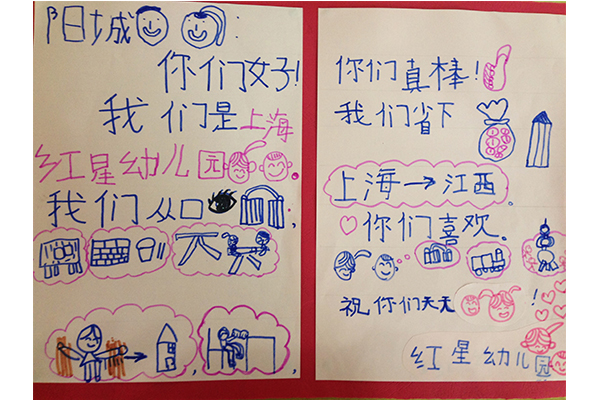 阳城:
你们女子!
我们是上海
红星幼儿园。
我们从口;
,
,
你们真棒!
我们省下
上海→江西。
你们喜欢。
祝你们天天!
红星幼儿园